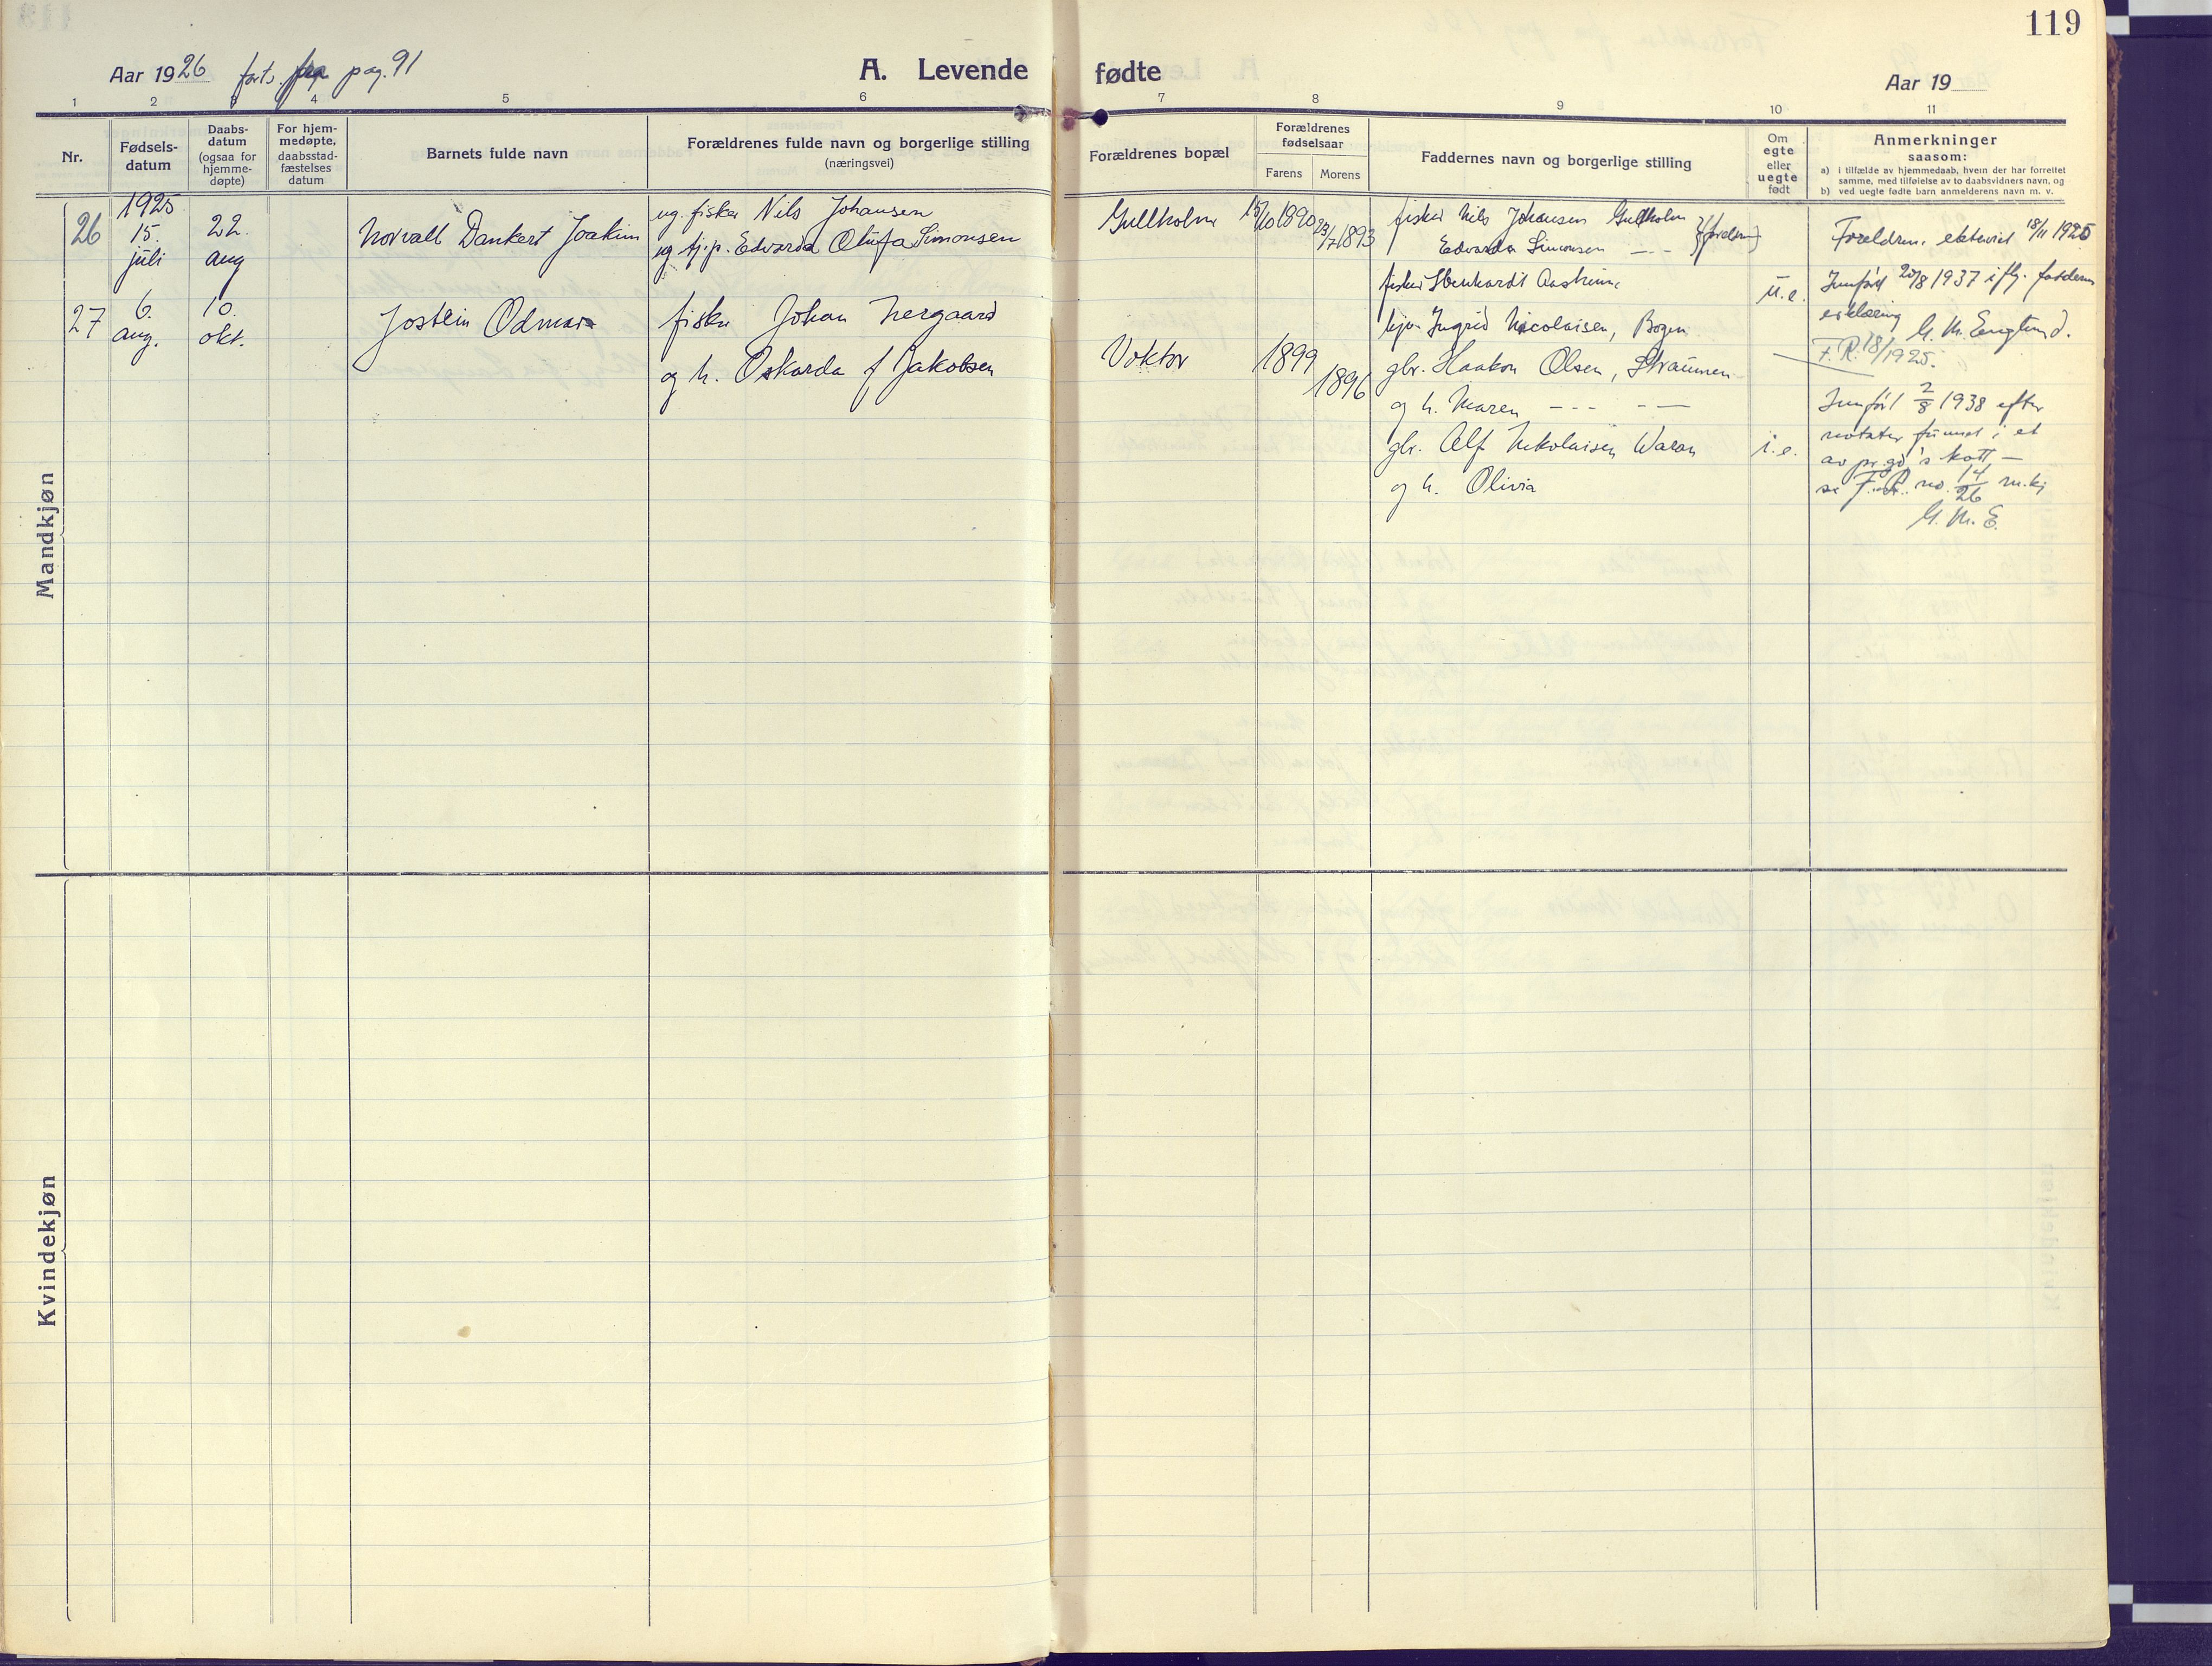 119
Aar 1926 forts. fra pag. 91
A. Levende fødte
Aar 19
1 2 3 4 5 6 7 8 9 10 11
Nr.
Fødsels-
datum
Daabs-
datum
(ogsaa for
hjemme-
døpte)
For hjem-
medøpte,
daabsstad-
fæstelses
datum
Barnets fulde navn
Forældrenes fulde navn og borgerlige stilling
(næringsvei)
Forældrenes bopæl
Forældrenes
fødselsaar
Farens Morens
Faddernes navn og borgerlige stilling
Om
egte
eller
uegte
født
Anmerkninger
saasom:
a) i tilfælde av hjemmedaab, hvem der har forrettet
samme, med tilføielse av to daabsvidners navn, og
b) ved uegte fødte barn anmelderens navn m. v.
Mandkjøn
26
1925
15.
juli
22.
aug
Norvall Dankert Joakim
ug. fisker Nils Johansen
ug tj.p. Edvarda Olufa Simonsen
Gullholm
15/10 1890
23/7 1893
fisker Nils Johansen Gullholm
Edvarda Simonsen — - (foreldre)
fisker Ebenhardt Aasheim
hjv. Ingrid Nicolaisen, Bogen
u.e.
Foreldrene ektev 18/11 1925
Innført 20/8 1937 iflg. faderens
erklæring G. M. Englund.
F.R. 18/1925.
27
6.
aug.
10.
okt.
Jostein Odmar
fisker Johan Nergaard
og h. Oskarda f Jakobsen
Voktor
1899
1896
gbr. Haakon Olsen, Straumen
og h. Maren --- - —
gbr. Alf Nikolaisen Waran
og h. Olivia
i.e.
Innført 2/8 1938 efter
notater funnet i et
av pr.gd's kott —
se F.R. no. 14/26 m.kj
G. M. E.
Kvindekjøn